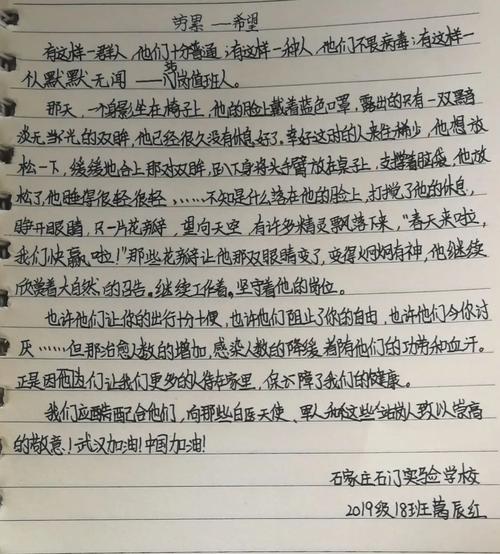 ——希望
有这样一群人，他们十分普通；有这样一种人，他们不畏病毒；有这样一
队默默无闻——门岗值班人。
那天，一个身影坐在椅子上，他的脸上戴着蓝色口罩，露出的只有一双黯
淡无光的双眸，他已经很久没有休息好了。幸好这边的人来往稀少，他想放
松一下，缓缓地合上那对双眸，趴下身将头手臂放在桌子上，支撑着脑袋。他放
松了，他睡得很轻很轻……不知是什么落在他的脸上，打搅了他的休息，
睁开眼睛，只一片花瓣，望向天空，有许多精灵飘落下来，"春天来啦，
我们快赢啦！"那些花瓣让他那双眼睛变了，变得炯炯有神，他继续
欣赏着大自然的召告。继续工作着。坚守着他的岗位。
也许他们让你的出行十分不便，也许他们阻止了你的自由，也许他们令你讨
厌……但那治愈人数的增加，感染人数的降缓着有他们的功劳和血汗。
正是因他们让我们更多的人待在家里，保障了我们的健康。
我们应配合他们，向那些白衣天使、军人和这些站岗人致以崇高
的敬意！武汉加油！中国加油！
石家庄石门实验学校
2019级18班 辰红